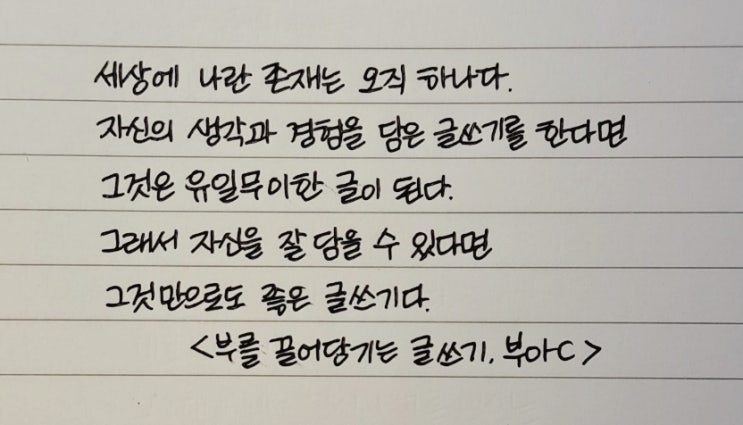 세상에 나란 존재는 오직 하나다.
자신의 생각과 경험을 담은 글쓰기를 한다면
그것은 유일무이한 글이 된다.
그래서 자신을 잘 담을 수 있다면
그것만으로도 좋은 글쓰기다.
<부를 끌어당기는 글쓰기. 부아C>